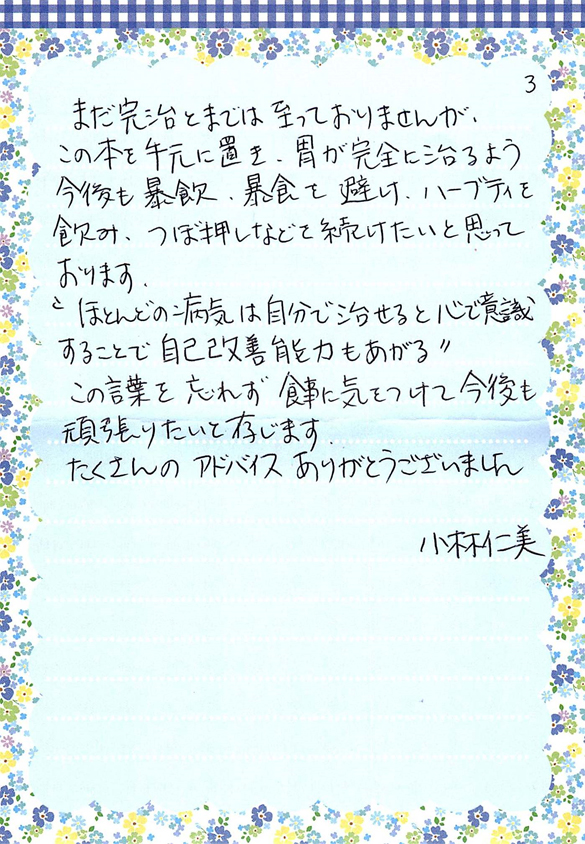 3
まだ完治とまでは至っておりませんが、
この本を手元に置き、胃が完全に治るよう
今後も暴飲、暴食を避け、ハーブティを
飲み、つぼ押しなどを続けたいと思って
おります。
〝ほとんどの病気は自分で治せると心で意識
することで自己改善能力もあがる〃
この言葉を忘れず食事に気をつけて今後も
頑張りたいと存じます。
たくさんのアドバイスありがとうございました
小林仁美